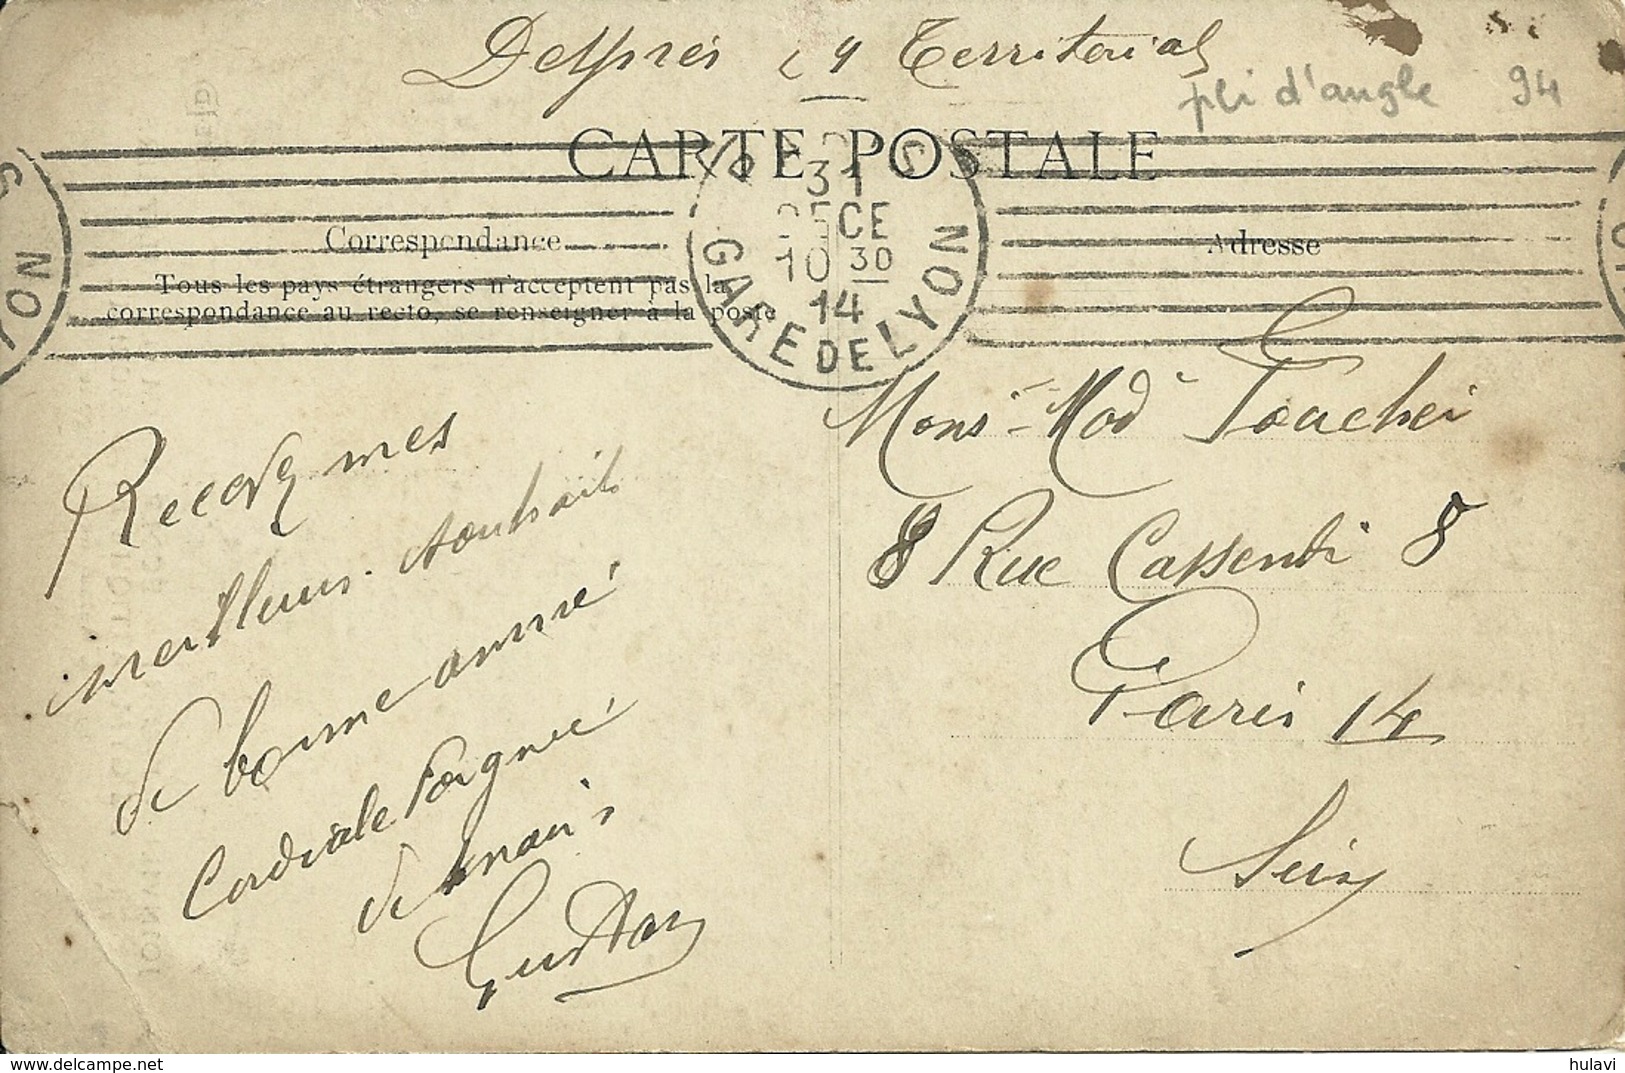 Delprei 29 Territorial
pli d'angle 94
CARTE POSTALE
PARIS
31
DECE
10 30
14
GARE DE LYON
Correspondance
Adresse
Tous les pays étrangers n'acceptent pas la
correspondance au recto, se renseigner à la poste
LYON
Mons- Mad Touchei
8 Rue Cassendi 8
Paris 14
Recevez mes
meilleurs souhaits
de bonne anneé
Cordiale Poigneé
de main
Gustave
hulavi